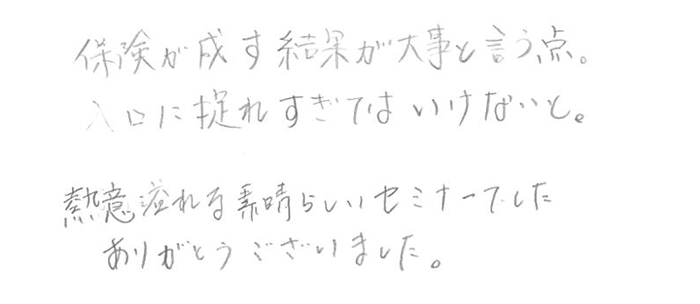 保険が成す結果が大事と言う点。
入口に捉れすぎてはいけないと。
熱意溢れる素晴らしいセミナーでした
ありがとうございました。